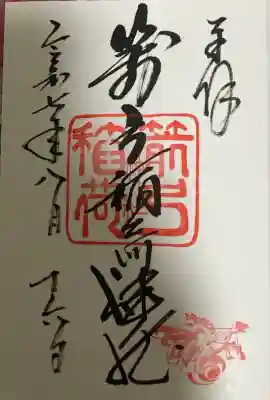 奉拝
箭弓稲荷神社
箭弓
稲荷
令和七年八月十六日